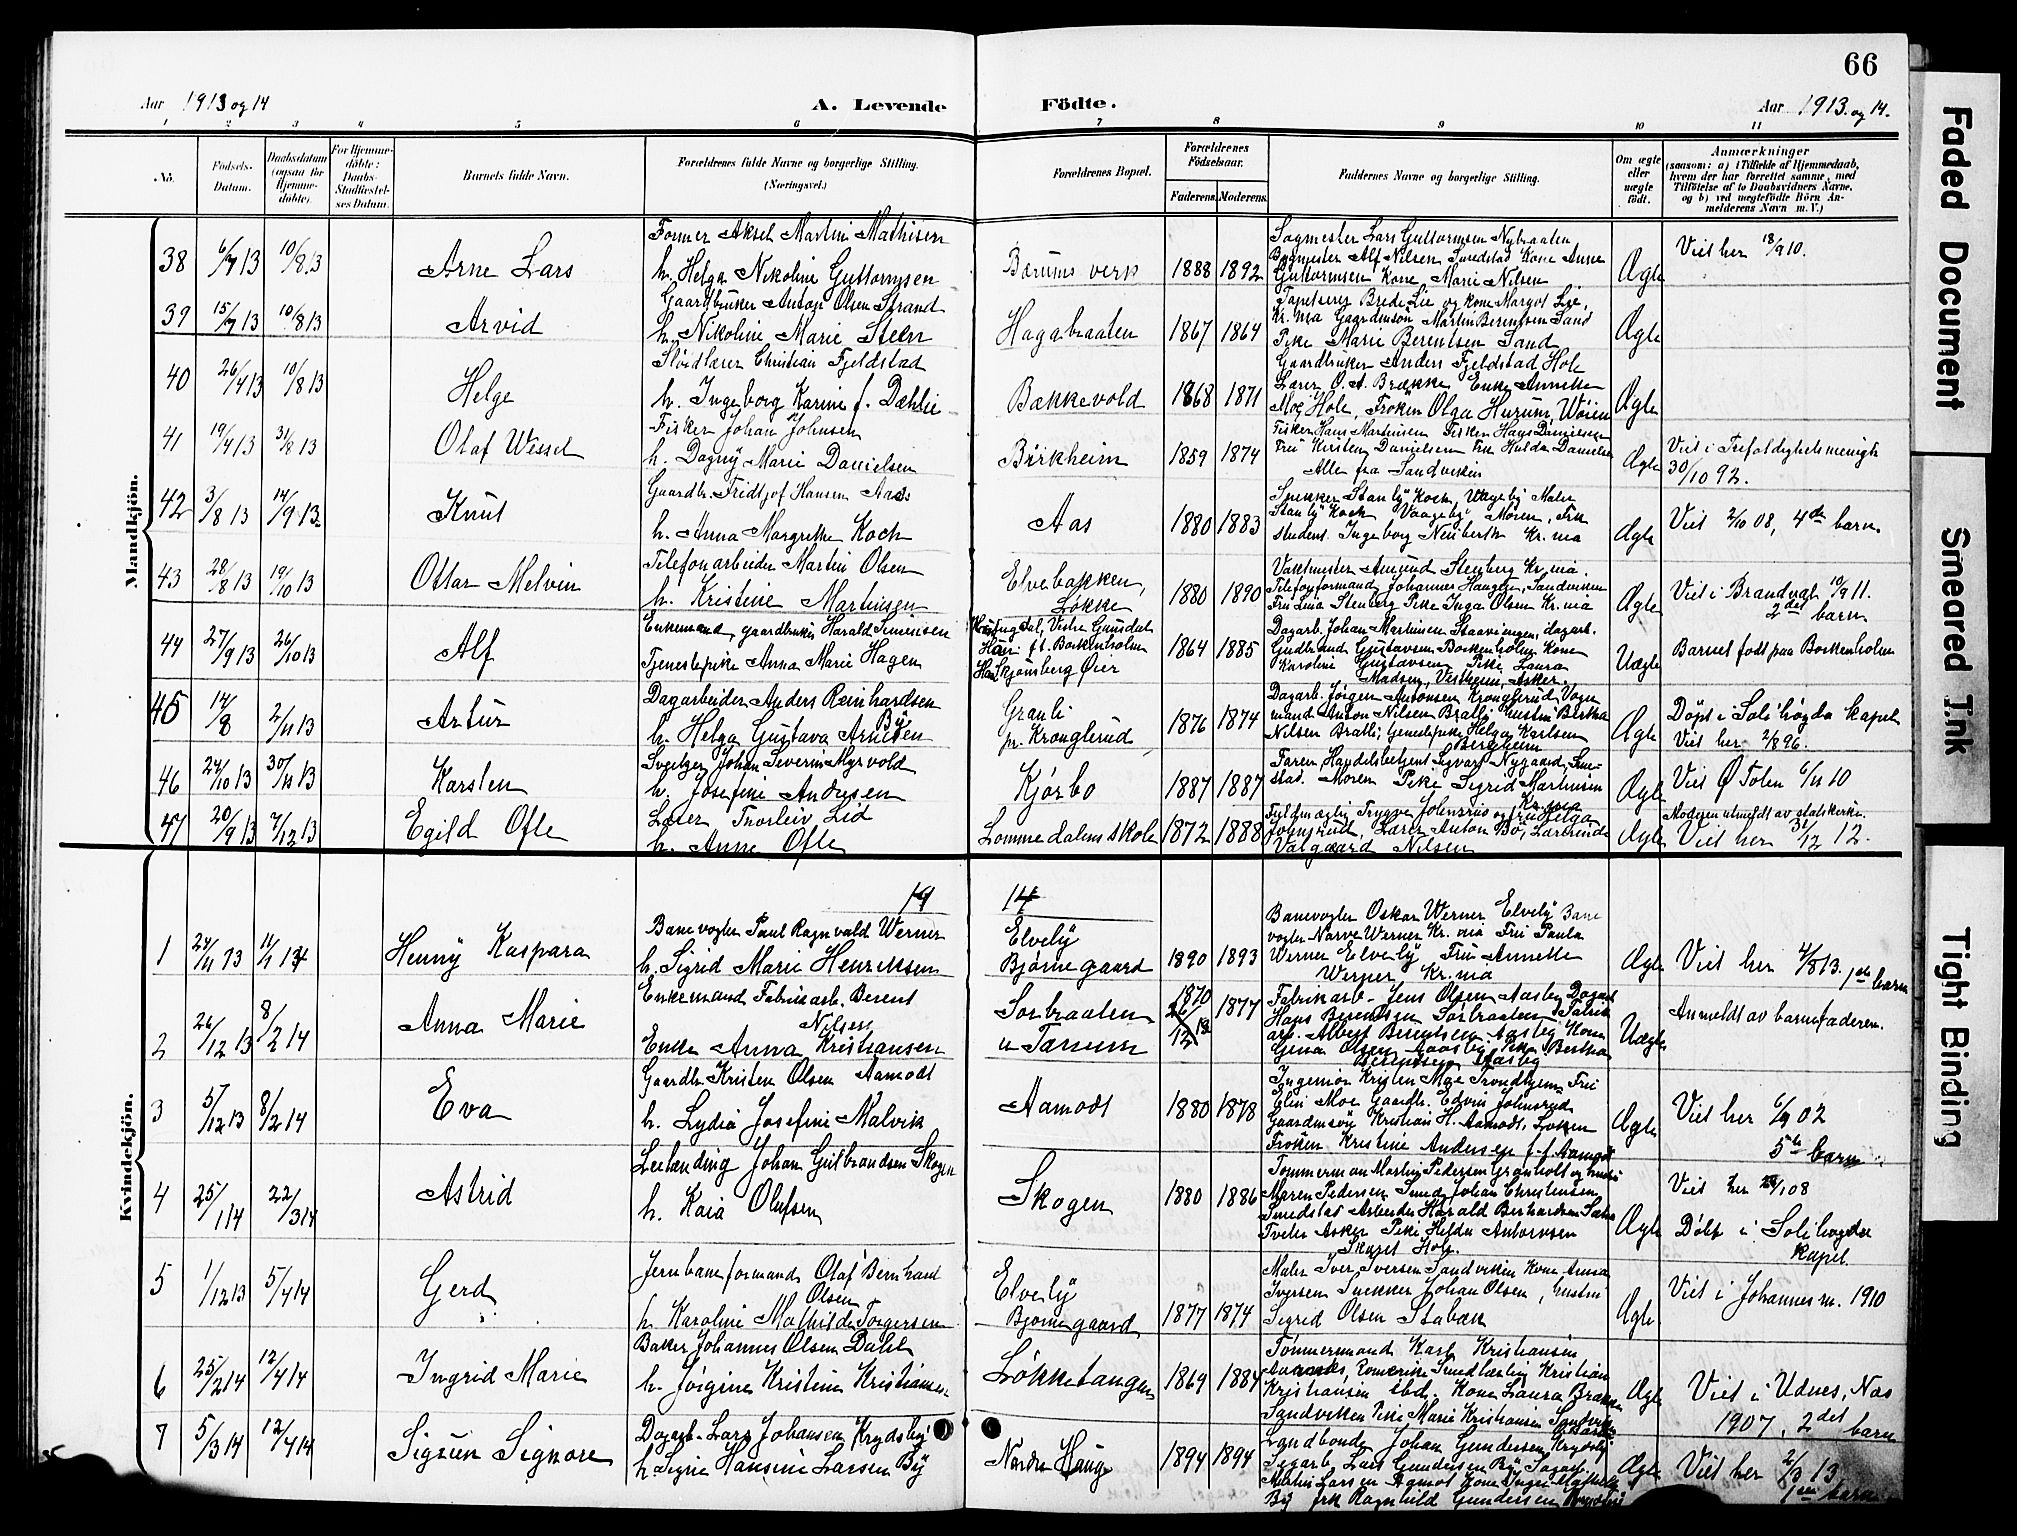 66
Aar 1913 og 14
A. Levende Födte.
Aar 1913. og 14.
1 2 3 4 5 6 7 8 9 10 11
No. Födsels-Datum. Daabsdatum (ogsaa for Hjemme-döbte). For Hjemme-döbte: Daabs-Stadfæstel-ses Datum. Barnets fulde Navn. Forældrenes fulde Navne og borgerlige Stilling. (Næringsvei.) Forældrenes Bopæl. Forældrenes Födselsaar. Faderens. Moderens. Faddernes Navne og borgerlige Stilling. Om ægte eller uægte födt. Anmærkninger (saasom: a) i Tilfælde af Hjemmedaab, hvem der har forrettet samme, med Tilföielse af to Daabsvidners Navne, og b) ved uægtefödte Börn An-melderens Navn m. V.)
Mandkjön.
38 6/7 13 10/8 13 Arne Lars
Former Aksel Martin Mathisen
h. Helga Nikoline Guttormsen
Bærums verk 1888 1892
Sagmester Lars Guttormsen Nybraaten
Alf Nilsen Sandstad Kone Anne
Guttormsen Kone Marie Nilsen
Ægte Viet her 18/9 10.
39 15/7 13 10/8 13 Arvid
Gaardbruker Anton Olsen Strand
h. Nikoline Marie Steen
Hagabraaten 1867 1864
Tapetserer Brede Lie og kone Margot Lie,
Kr.nia Gaardmsön Martin Berentsen Sand
Pike Marie Berentsen Sand
Ægte
40 26/4 13 10/8 13 Helge
Slöidlærer Christian Fjeldstad
h. Ingeborg Karine f. Dæhlie
Bækkevold 1868 1871
Gaardbruker Anders Fjeldstad Hole
Lærer O. A. Brække Enke Annette
Moe, Hole, Fröken Olga Hurum Wöien
Ægte
41 19/4 13 31/8 13 Olaf Wessel
Fisker Johan Johnsen
h. Dagny Marie Danielsen
Birkheim 1859 1874
Fisker Hans Martinsen Fisker Hans Danielsen
Fru Kirsten Danielsen Frk Hulda Danielsen
Alle fra Sandviken
Ægte Viet i Trefoldighetsmenigh
30/10 92.
42 3/8 13 14/9 13 Knut
Gaardb. Fridtjof Hansen Aas
h. Anna Margrethe Koch
Aas 1880 1883
Snekker Stanly Koch, Vaageby Maler
Stanly Koch Vaageby Moren, Frk
student Ingeborg Neuberth Kr.nia
Ægte Viet 2/10 08, 4de barn
43 28/8 13 19/10 13 Ottar Melvin
Telefonarbeider Martin Olsen
h. Kristine Martinsen
Elvebakken,
Løkke 1880 1890
Vaktmester Amund Stenberg Kr.nia.
Telefonformand Johannes Haugen, Sandviken
Fru Lina Stenberg Pike Inga Olsen Kr.nia
Ægte Viet i Brandval 10/9 11.
2det barn
44 27/9 13 26/10 13 Alf
Enkemand, gaardbruker Harald Simensen
Tjenestepike Anna Marie Hagen
Vestre Gausdal
Hun f.t. Borkenholm
Skjønsberg Øier 1864 1885
Dagarb. Johan Martinsen Staavingen, dagarb.
Gudbrand Gustavsen Borkenholm Kone
Karoline Gustavsen Pike Laura
Madsen, Vestheim, Asker.
Uægte Barnet født paa Borkenholm
45 14/8 2/11 13 Artur
Dagarbeider Anders Reinhardsen
By
h. Helga Gustava Arnesen
Granli
pr. Kronglerud 1876 1874
Dagarb. Jörgen Antonsen Kronglerud, Vogn
mand Anton Nilsen Bratli, hustru Bertha
Nilsen Bratli, Gemelspike Helga Karlsen
Bergheim
Ægte Döpt i Solihögda kapel
Viet her 2/8 96.
46 24/10 13 30/11 13 Karsten
Sveitzer Johan Severin Myrvold
h. Josefine Andresen
Kjörbo 1887 1887
Faren, Handelsbetjent Sigvart Nygaard, Sme-
stad. Moren Pike Sigrid Martinsen
Kr.nia
Ægte Viet Ø Toten 6/11 10
47 20/9 13 7/12 13 Egild Ofte
Lærer Torleiv Lid
h. Anne Ofte
Lommedalens skole 1872 1888
Fuldmægtig Trygve Johnsrud og fru Helga
Johnsrud, Lærer Anton Bö, Lærerinde
Valgaard Nilsen
Ægte Moderen utmeldt av statskirke.
Viet her 31/12 12.
1914
Kvindekjön.
1 24/11 13 11/1 14 Henny Kaspara
Banevogter Paul Ragnvald Werner
h. Sigrid Marie Henriksen
Elvely
Bjørnegaard 1890 1893
Banevogter Oskar Werner Elvely Bane
vogter Narve Werner Kr.nia Fru Paula
Werner Elvely Fru Annette
Werner Kr.nia
Ægte Viet her 4/8 13. 1ste barn
2 26/12 13 8/2 14 Anna Marie
Enkemand Fabrikarb. Berent
Nilsen
Enke Anna Kristiansen
Sorbraaten
u Tanum 1870 1877
26/12 13
Fabrikarb. Jens Olsen Aasby Dagarb
Hans Berentsen Sorbraaten Fabrik
arb. Albert Berentsen Aasby Kone
Gina Olsen Aasby Pike Bertha
Berentsen Aasby
Uægte Anmeldt av barnefaderen.
3 5/12 13 8/2 14 Eva
Gaardb. Kristen Olsen Aamodt
h. Lydia Josefine Malvik
Aamodt 1880 1878
Ingeniør Kristen Moe Trondhjem Fru
Elin Moe Gaardb. Edvin Johnsrud
Gaardmsön Kristian H. Aamodt, Lokken
Fröken Kristine Andersen f.t. Aamodt
Ægte Viet her 6/9 02
5te barn
4 25/1 14 22/3 14 Astrid
Leilænding Johan Gulbrandsen Skogen
h. Kaia Olufsen
Skogen 1880 1886
Tømmerman Martin Pedersen Granholt og hustru
Maren Pedersen Smed Johan Christensen
Smedstad Arbeider Harald Berhardsen Sætra
Tveter Asker Pike Helda Antonsen
Hole.
Ægte Viet her 08
Döbt i Solihogda
Kapel.
5 1/12 13 5/4 14 Gerd
Jernbaneformand Olaf Bernhard
Olsen
h. Karoline Mathilde Torgersen
Elvely
Bjørnegaard 1877 1874
Maler Iver Iversen Sandviken Kone Anna
Iversen Snekker Johan Olsen, hustru
Sigrid Olsen Stabæk
Ægte Viet i Johannes m. 1910
6 25/2 14 12/4 14 Ingrid Marie
Baker Johannes Olsen Dahl
h. Jörgine Kristine Kristiansen
Løkketangen 1869 1884
Tømmermand Karl Kristiansen
Romerike Smedlærling Kristian
Kristiansen sted. Kone Laura Brække
Sandviken Pike Marie Kristiansen Sandviken
Ægte Viet i Udnes, Nes
1907, 2det barn
7 5/3 14 12/4 14 Sigrun Signore
Dagarb. Lars Johansen Krydsby
h. Signe Hansine Larsen By
Nordre Hauge 1894 1894
Landbonde Johan Gundersen Krydsby
Sagarb. Lars Gundersen By Sagarb
Martin Larsen Aamot Kone Inger
By frk Ragnhild Gundersen Krydsby
Ægte Viet her 2/3 13
1ste barn
Faded Document
Smeared Ink
Tight Binding